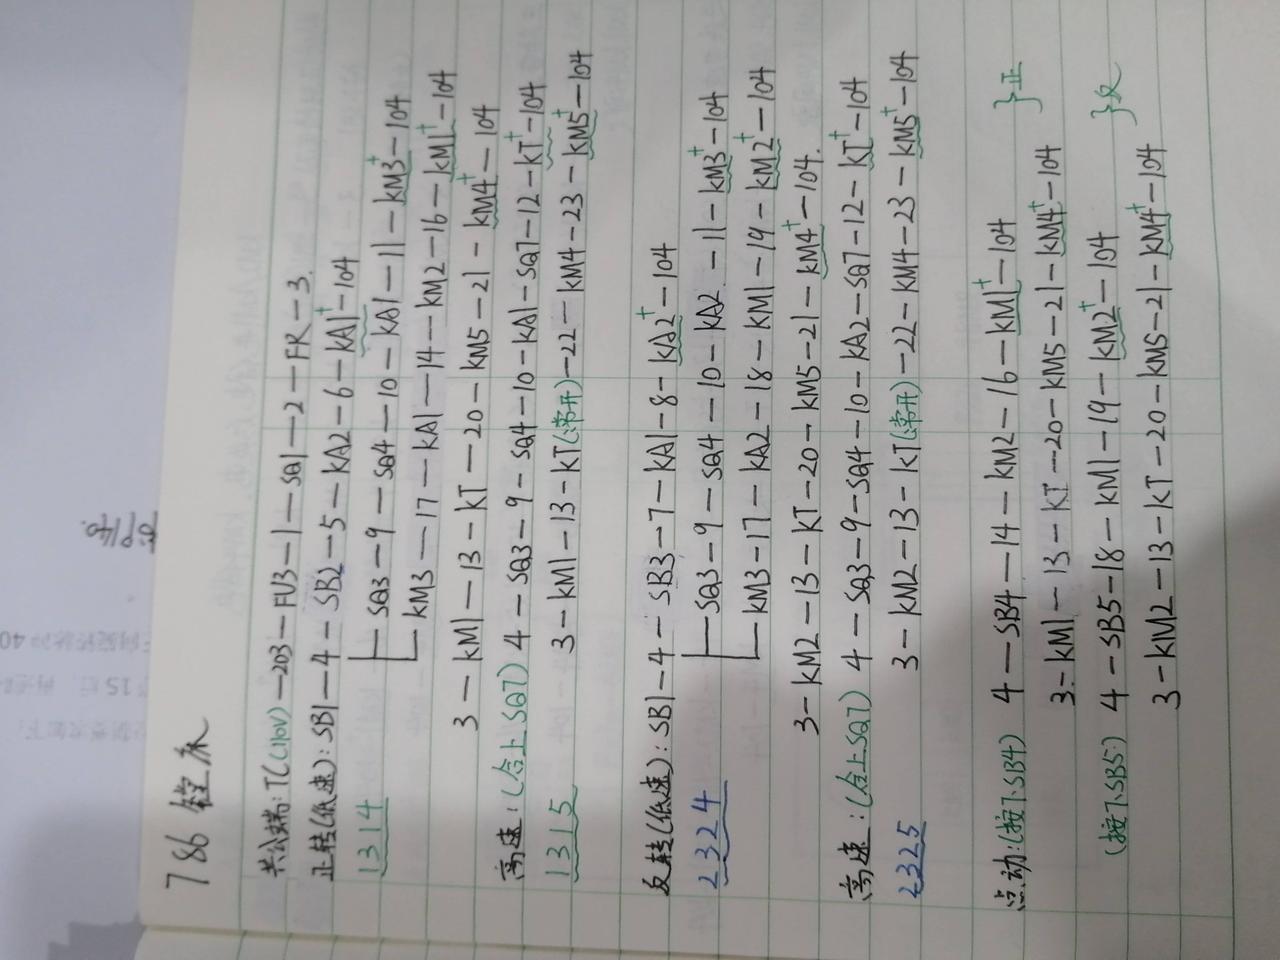 786 镗床
共公端: TC(110V)—203—FU3—1—SQ1—2—FR—3.
正转(低速): SB1—4—SB2—5—KA2—6—KA1⁺—104
SQ3—9—SQ4—10—KA1—11—KM3⁺—104
1314
KM3—17—KA1—14—KM2—16—KM1⁺—104
3—KM1—13—KT—20—KM5—21—KM4⁺—104
高速: (合上SQ7) 4—SQ3—9—SQ4—10—KA1—SQ7—12—KT⁺—104
1315
3—KM1—13—KT(常开)—22—KM4—23—KM5⁺—104
反转(低速): SB1—4—SB3—7—KA1—8—KA2⁺—104
2324
SQ3—9—SQ4—10—KA2—11—KM3⁺—104
KM3—17—KA2—18—KM1—19—KM2⁺—104
3—KM2—13—KT—20—KM5—21—KM4⁺—104.
高速: (合上SQ7) 4—SQ3—9—SQ4—10—KA2—SQ7—12—KT⁺—104
2325
3—KM2—13—KT(常开)—22—KM4—23—KM5⁺—104
点动: (按下SB4) 4—SB4—14—KM2—16—KM1⁺—104 }正
3—KM1—13—KT—20—KM5—21—KM4⁺—104
(按下SB5) 4—SB5—18—KM1—19—KM2⁺—104 }反
3—KM2—13—KT—20—KM5—21—KM4⁺—104